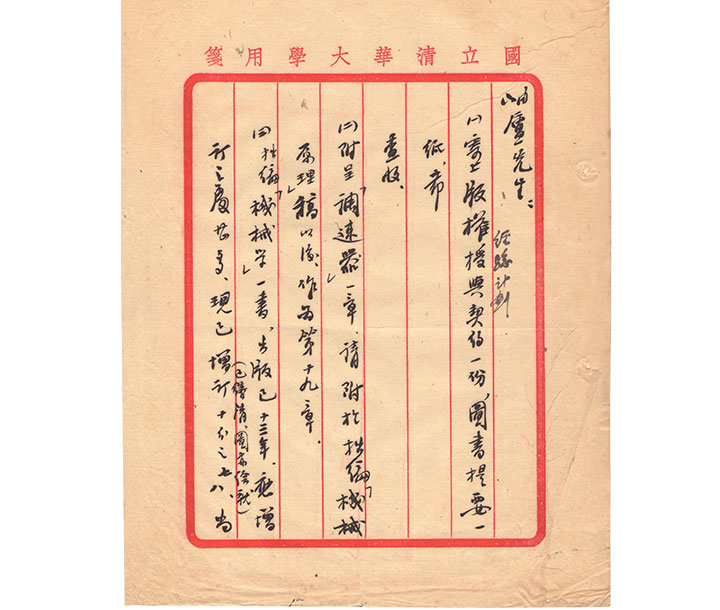 國立清華大學用箋
岫廬先生：
經農計劃
㈠寄上版權授與契約一份、圖書提要一
紙、希
查收、
㈡附呈「調速器」一章、請附於拙編「機械
原理」稿以後、作爲第十九章．
㈢拙編「機械學」一書、出版已十三年、應增
訂之處甚多、現已增訂十分之七八、尚
（已繕清、圖亦繪就）